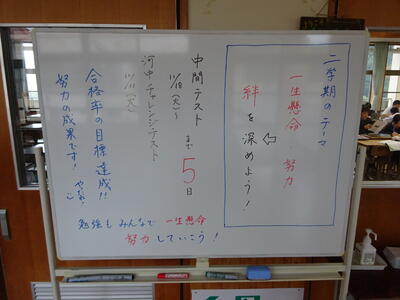 二学期のテーマ
一生懸命 努力
絆を深めよう！
中間テスト まで 5日
11/18(火)〜
河中チャレンジテスト
11/11(火)
合格率の目標達成!!
努力の成果です！
勉強もみんなで 一生懸命
努力していこう！